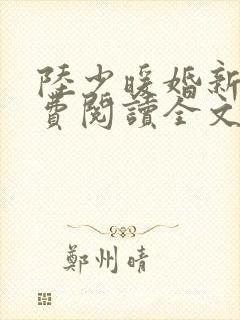 陸少暖婚新
費閱讀全文
鄭州晴